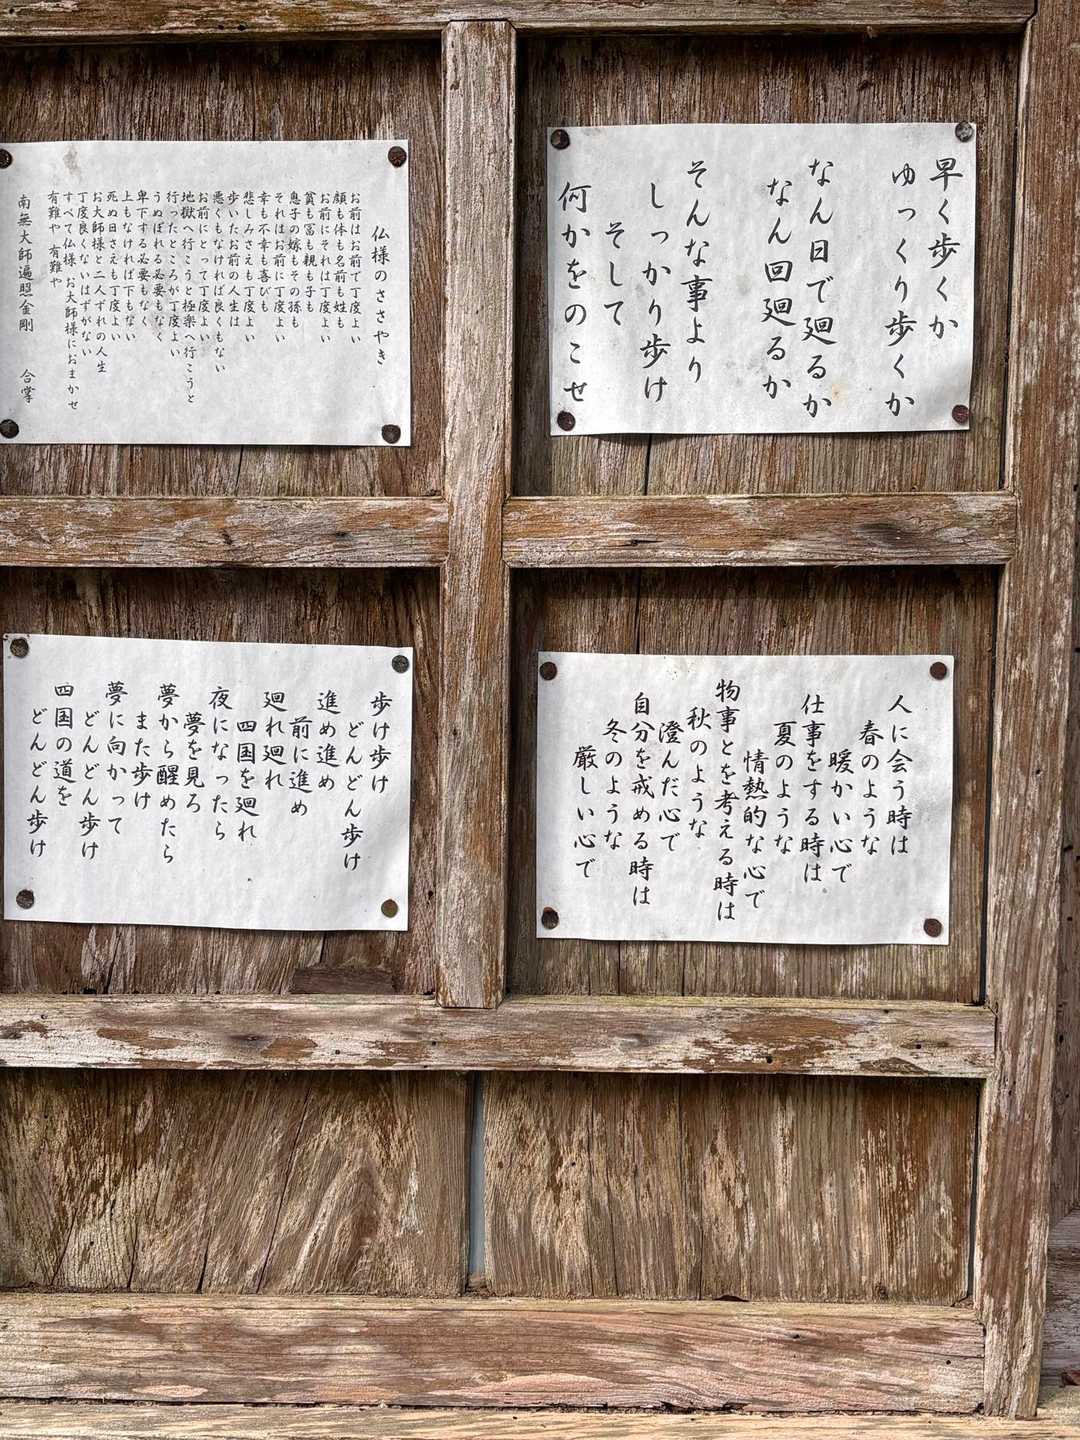 早く歩くか
ゆっくり歩くか
なん日で廻るか
なん回廻るか
そんな事より
しっかり歩け
そして
何かをのこせ
仏様のささやき
お前はお前で丁度よい
顔も体も名前も姓も
お前にそれは丁度よい
貧も富も親も子も
息子の嫁もその孫も
それはお前に丁度よい
幸も不幸も喜びも
悲しみさえも丁度よい
歩いたお前の人生は
悪くもなければ良くもない
お前にとって丁度よい
地獄へ行こうと極楽へ行こうと
行ったところが丁度よい
うぬぼれる必要もなく
卑下する必要もなく
上もなければ下もない
死ぬ日さえも丁度よい
お大師様と二人ずれの人生
丁度良くないはずがない
すべて仏様、お大師様におまかせ
有難や 有難や
南無大師遍照金剛 合掌
人に会う時は
春のような
暖かい心で
仕事をする時は
夏のような
情熱的な心で
物事とを考える時は
秋のような
澄んだ心で
自分を戒める時は
冬のような
厳しい心で
歩け歩け
どんどん歩け
進め進め
前に進め
廻れ廻れ
四国を廻れ
夜になったら
夢を見ろ
夢から醒めたら
また歩け
夢に向かって
どんどん歩け
四国の道を
どんどん歩け